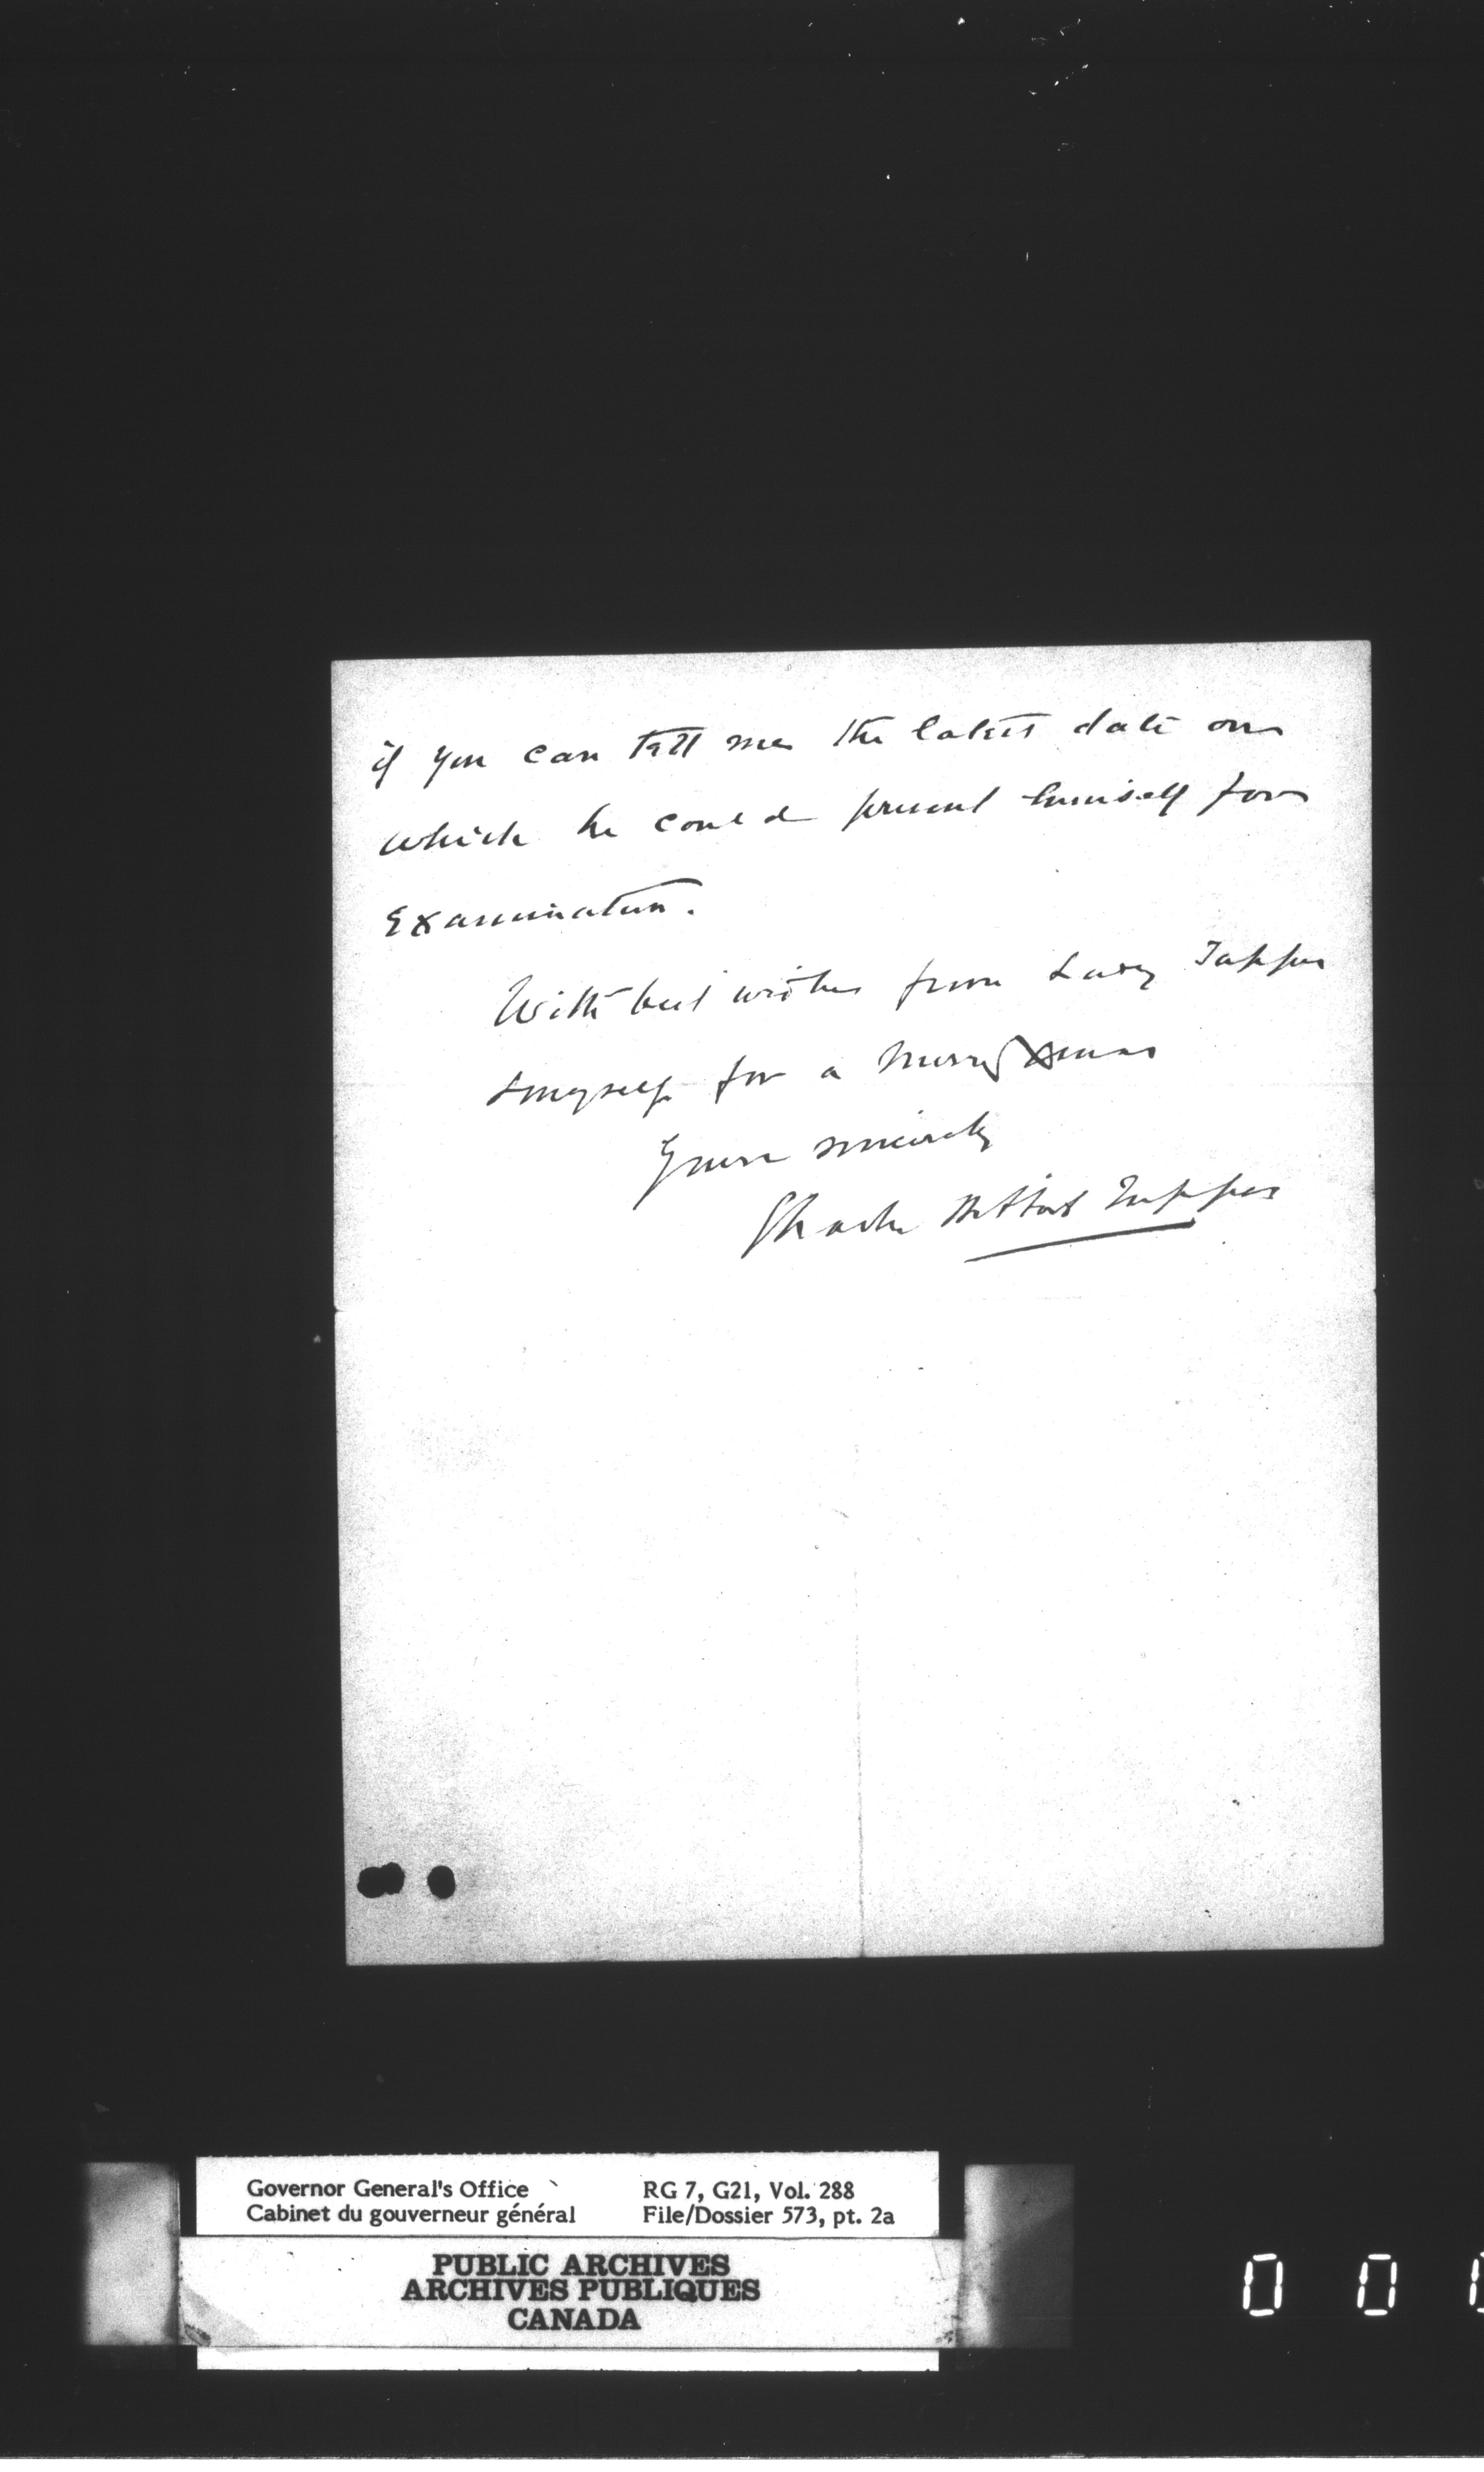 if you can tell me the latest date on
which he could present himself for
Examination.
With best wishes from Lady Tupper
& myself for a Merry Xmas
Yours sincerely
Charles Hibbert Tupper
Governor General's Office
Cabinet du gouverneur général
RG 7, G21, Vol. 288
File/Dossier 573, pt. 2a
PUBLIC ARCHIVES
ARCHIVES PUBLIQUES
CANADA
0 0